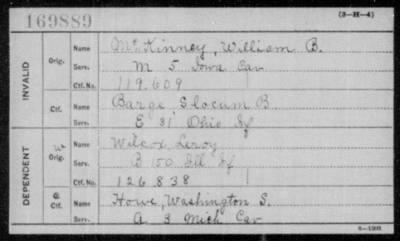 169889
(3-H-4)
INVALID
Orig.
Name McKinney, William B.
Serv. M 5 Iowa Cav
Ctf. No. 119.609
Ctf.
Name Barge Slocum B
Serv. E 31 Ohio Inf
DEPENDENT
W Orig.
Name Wilcox, Leroy
Serv. B 100 Ill Inf
Ctf. No. 126838
Ctf.
Name Howe, Washington S.
Serv. A 3 Mich Cav